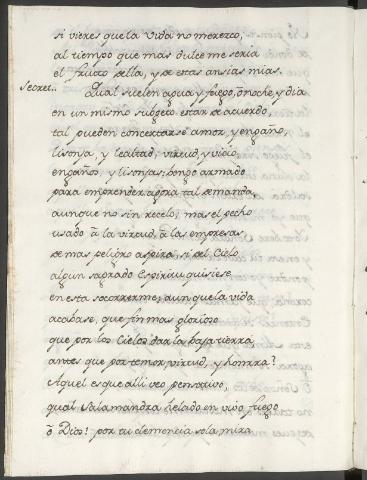 si vieres que la vida no merezco,
al tiempo que mas dulce me seria
el fructo della, y de estas ansias mias.
Secret.. Qual suelen agua y fuego, ô noche, y dia
en un mismo subgeto estar de acuerdo,
tal pueden concertarse amor, y engaño,
lisonja, y lealtad, virtud, y vicio,
engaños, y lisonjas; pongo armado
para emprender agora tal demanda,
aunque no sin recelo; mas el pecho
usado â la virtud, â las empresas
de mas peligro aspira; si del Cielo
algun sagrado Espiritu quisiese
en esta socorrerme; aunque la vida
acabase, que fin mas glorioso
que por los Cielos dar la baja tierra,
antes que por temor, virtud, y honrra?
Aquel es que alli veo pensativo,
qual Salamandra helado en vivo fuego
ô Dios! por tu clemencia sola mira